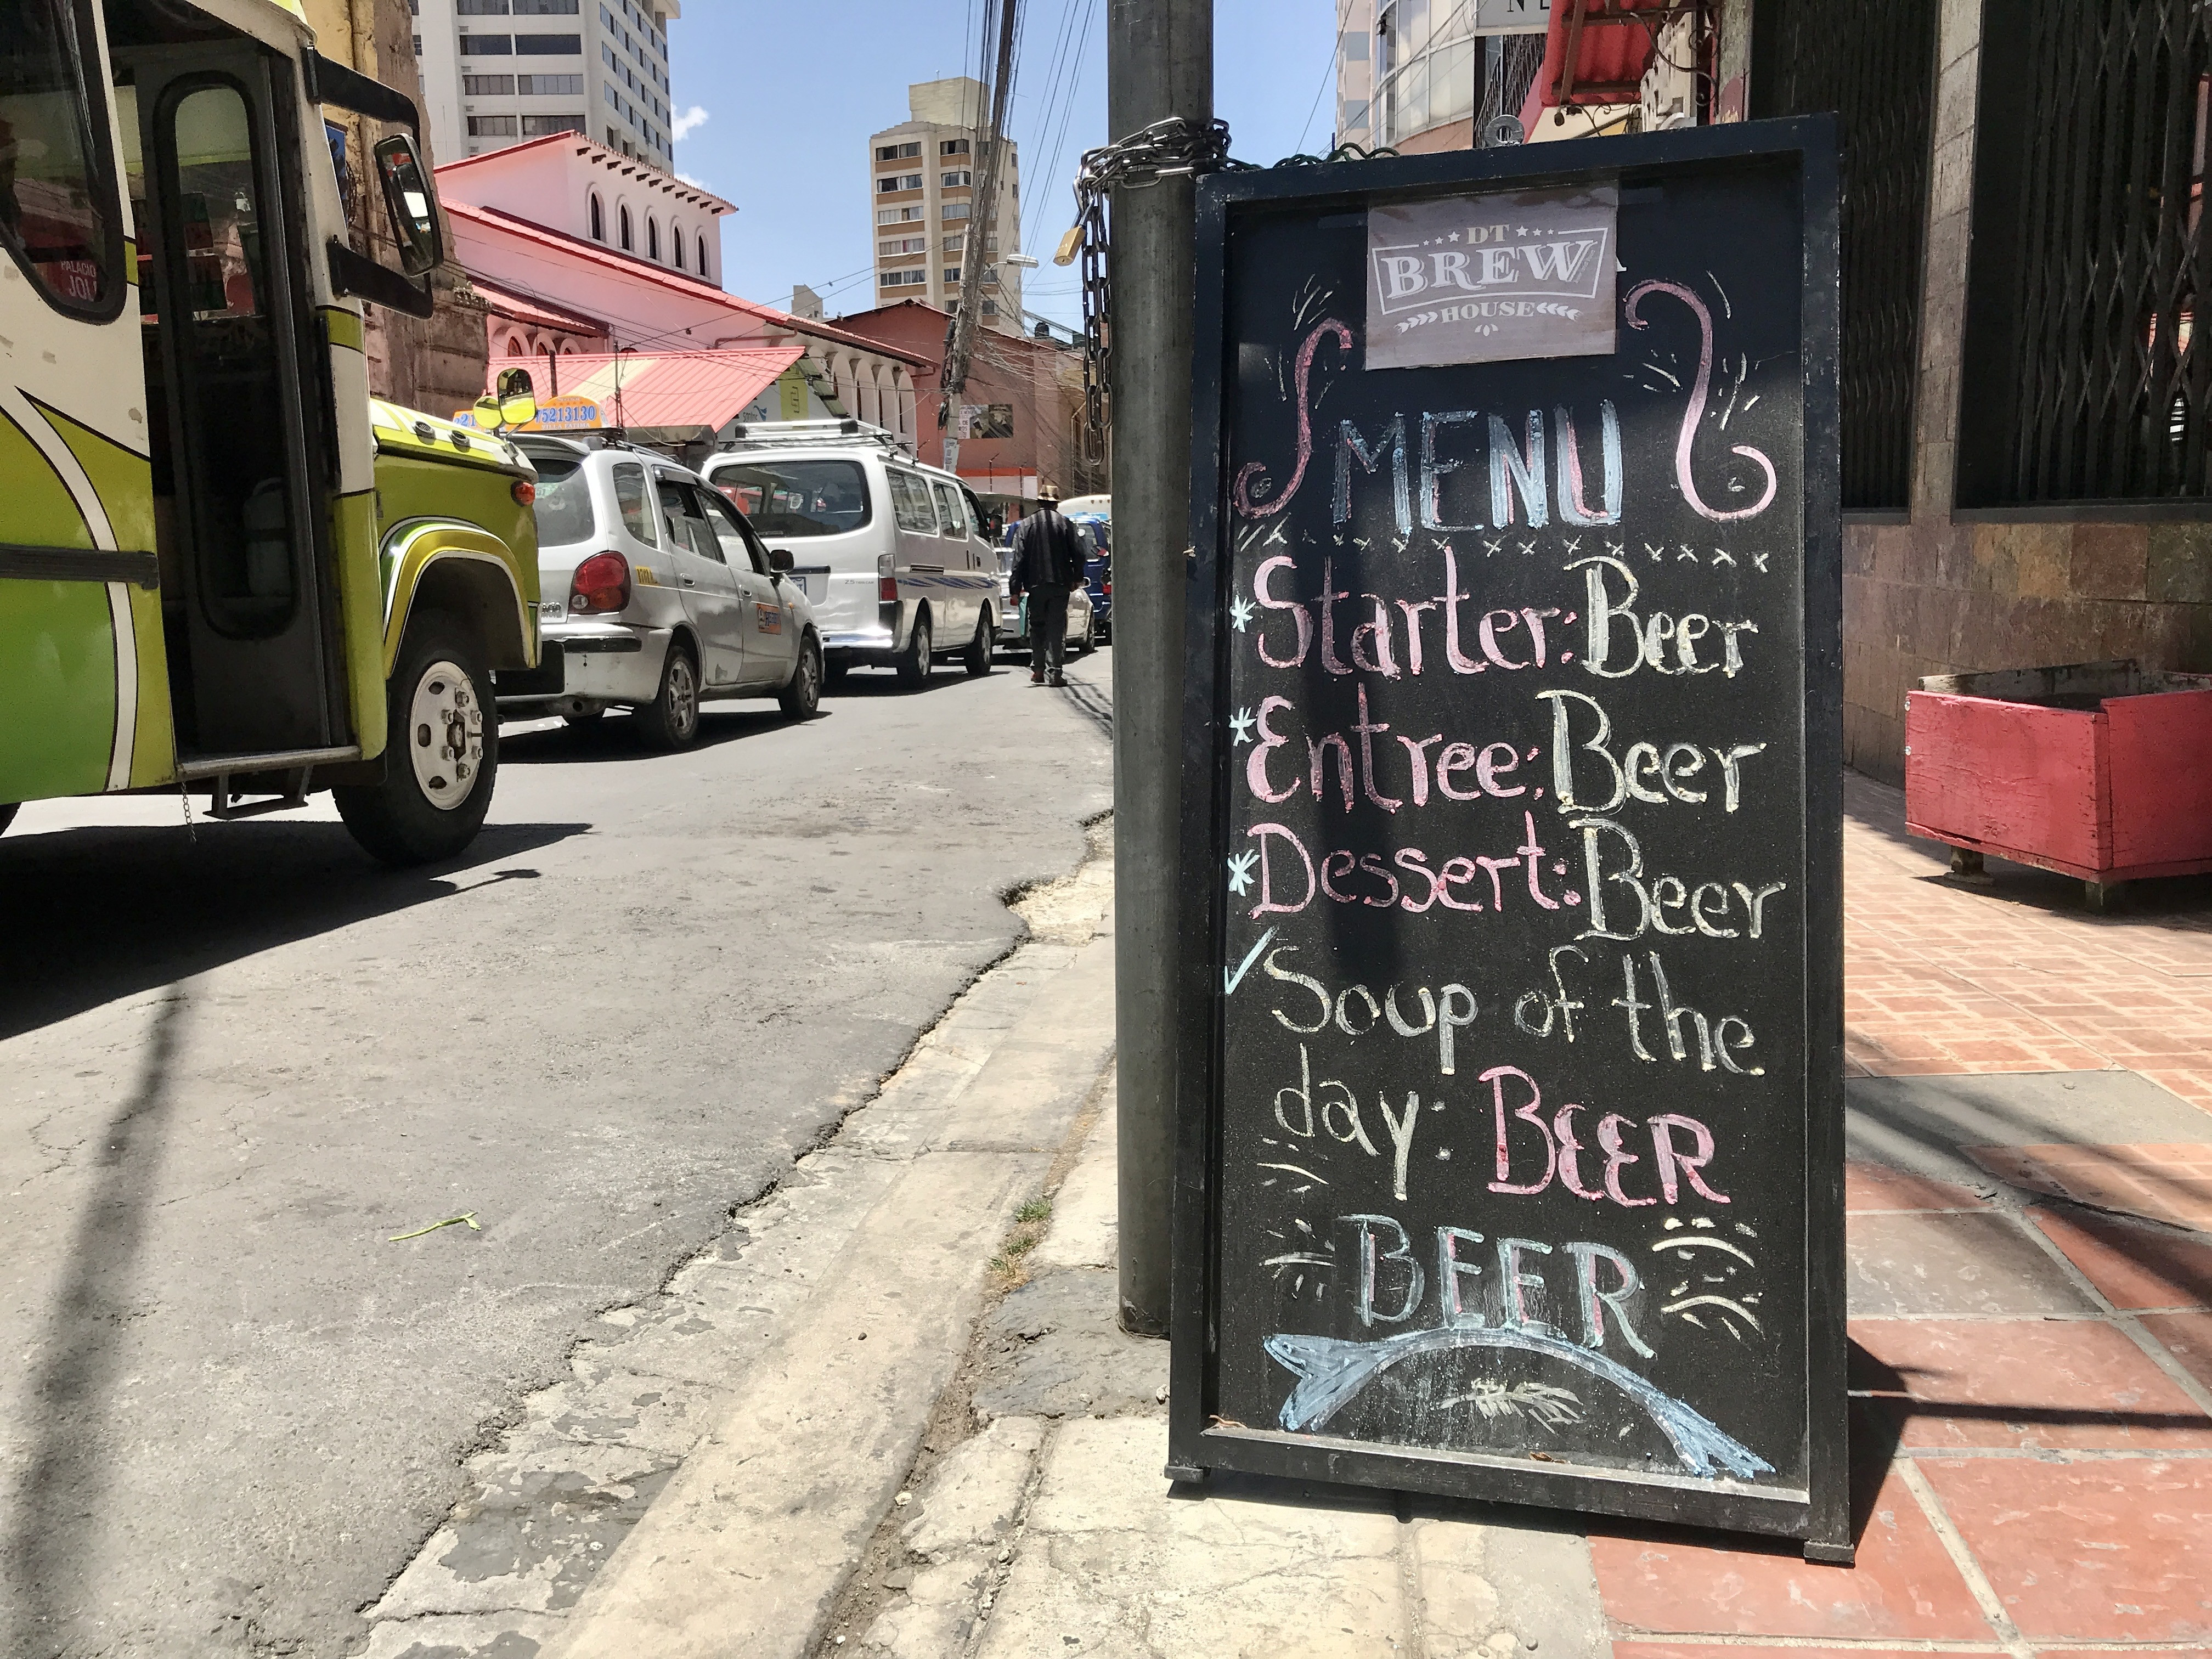 DT
BREW
HOUSE
MENU
Starter: Beer
Entree: Beer
Dessert: Beer
Soup of the
day: BEER
BEER
75213130
PALACIO